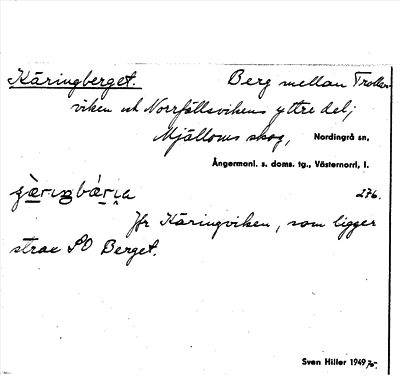 Käringberget. Berg mellan Trollen-
viken och Norrfällsvikens yttre del;
Mjälloms skog, Nordingrå sn,
Ångermanl. s. doms. tg., Västernorrl. l.
276.
Jfr Käringviken, som ligger
strax SO Berget.
Sven Hiller 1949